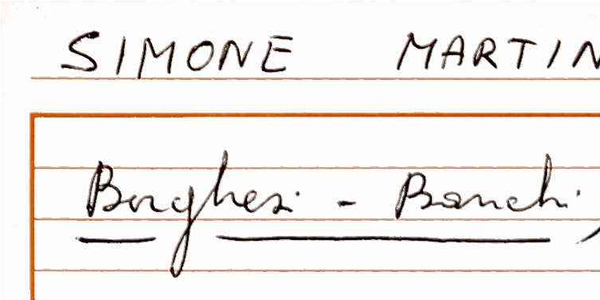 SIMONE MARTIN
Borghesi - Bianchi,